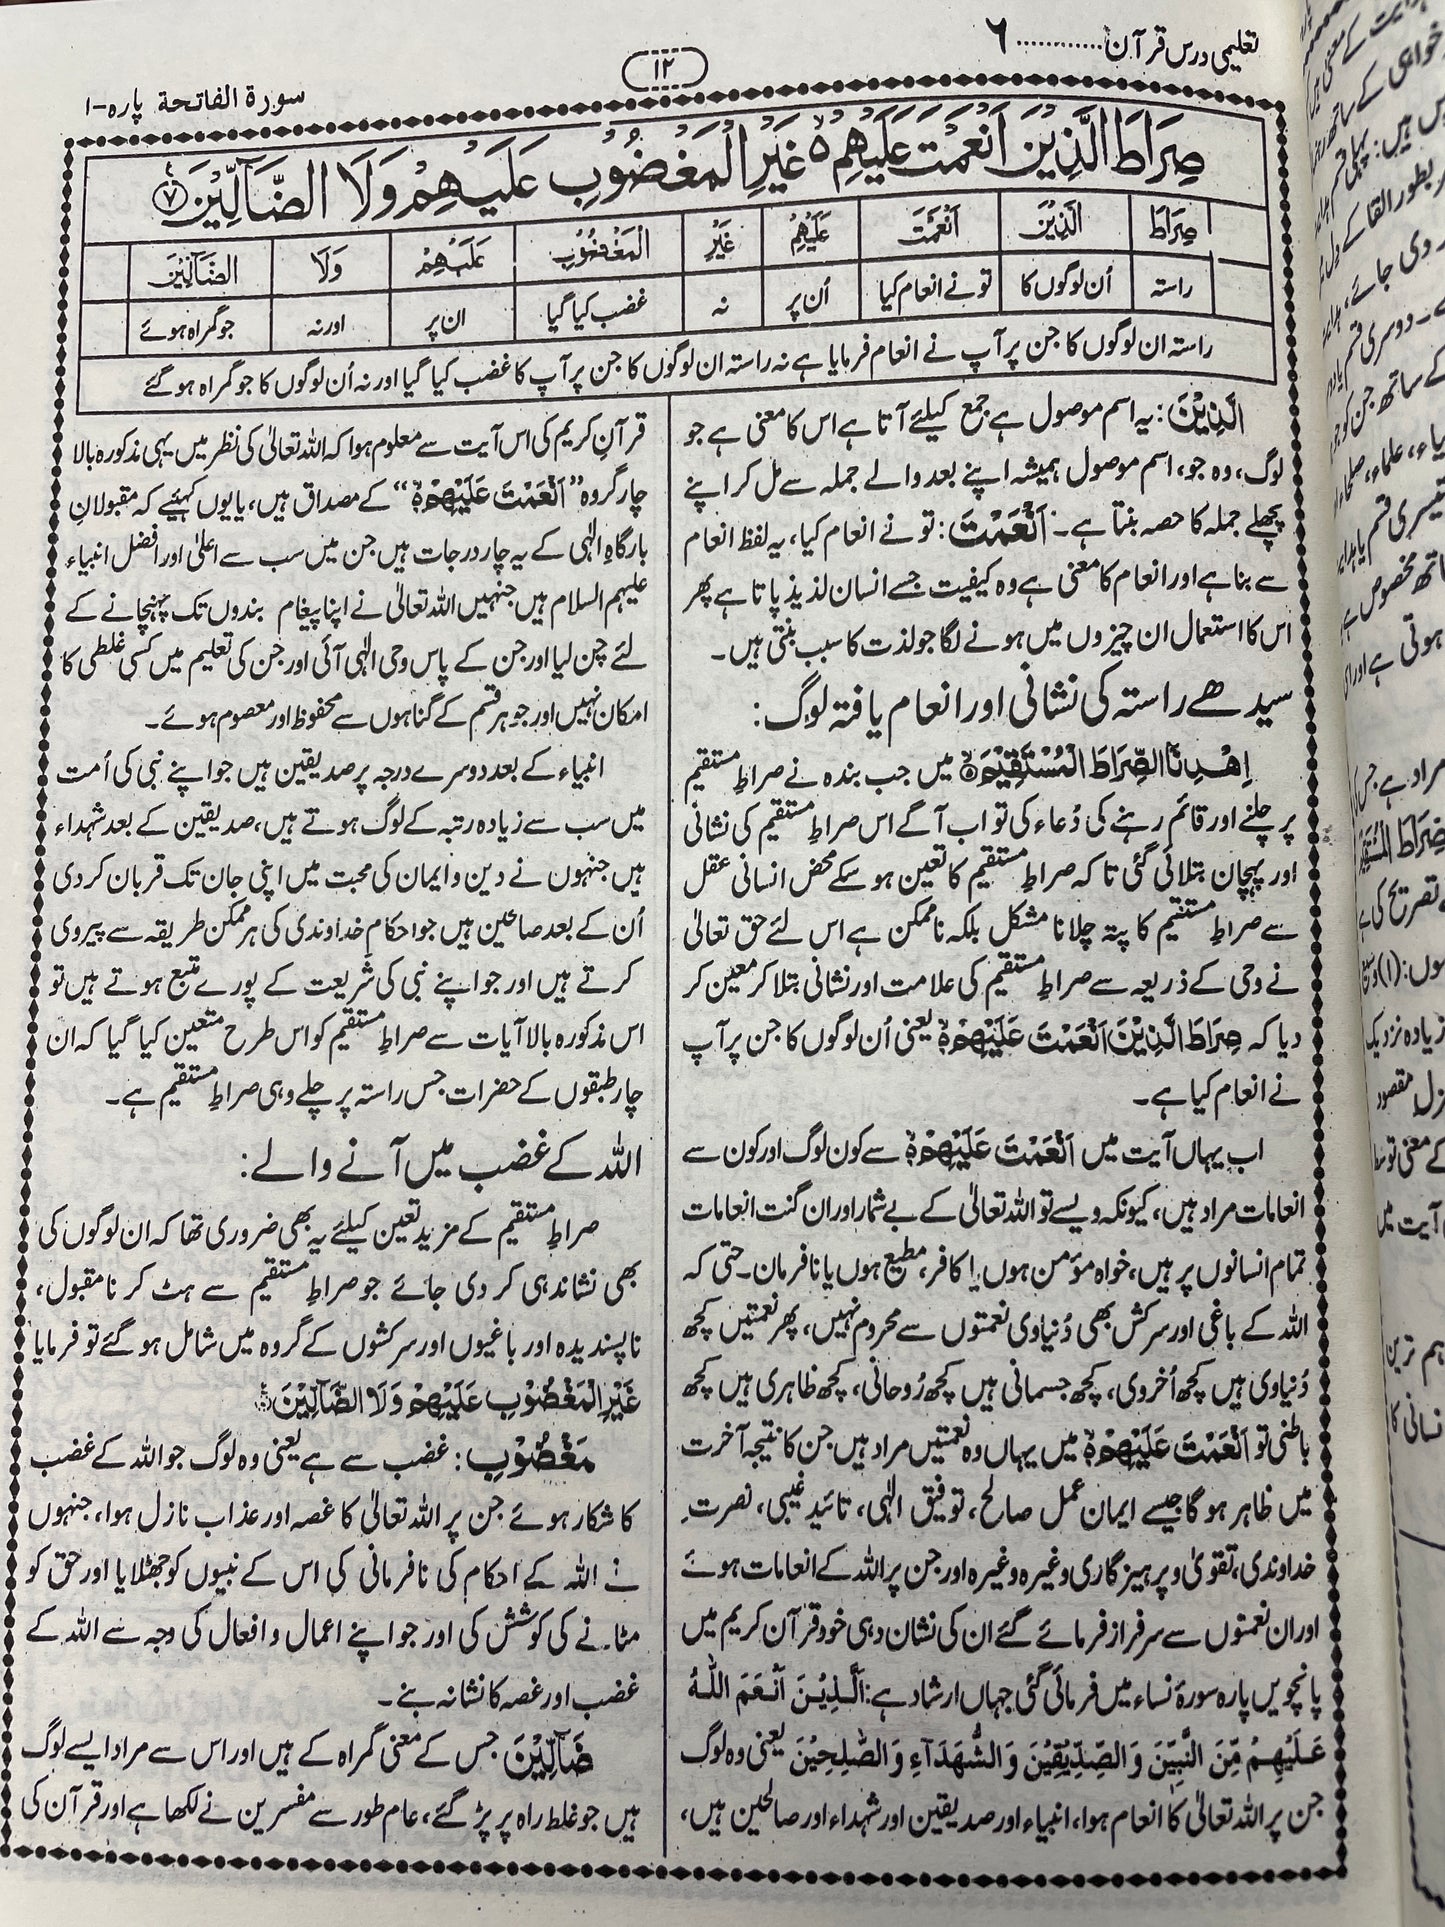 تعلیمی درس قرآن ............ ۶
۱۲
سورة الفاتحة پارہ-۱
صِرَاطَ الَّذِیْنَ اَنْعَمْتَ عَلَیْهِمْ ۵ غَیْرِ الْمَغْضُوْبِ عَلَیْهِمْ وَلَا الضَّآلِّیْنَ ﴿۷﴾
صِرَاطَ الَّذِیْنَ اَنْعَمْتَ عَلَیْهِمْ غَیْرِ الْمَغْضُوْبِ عَلَیْهِمْ وَلَا الضَّآلِّیْنَ
راستہ اُن لوگوں کا تو نے انعام کیا اُن پر نہ غضب کیا گیا ان پر اور نہ جو گمراہ ہوئے
راستہ ان لوگوں کا جن پر آپ نے انعام فرمایا ہے نہ راستہ ان لوگوں کا جن پر آپ کا غضب کیا گیا اور نہ اُن لوگوں کا جو گمراہ ہو گئے
الَّذِیْنَ: یہ اسم موصول ہے جمع کیلئے آتا ہے اس کا معنی ہے جو
لوگ، وہ جو، اسم موصول ہمیشہ اپنے بعد والے جملہ سے مل کر اپنے
پچھلے جملہ کا حصہ بنتا ہے۔ اَنْعَمْتَ: تو نے انعام کیا، یہ لفظ انعام
سے بنا ہے اور انعام کا معنی ہے وہ کیفیت جسے انسان لذیذ پاتا ہے پھر
اس کا استعمال ان چیزوں میں ہونے لگا جو لذت کا سبب بنتی ہیں۔
سیدھے راستہ کی نشانی اور انعام یافتہ لوگ:
اِهْدِنَا الصِّرَاطَ الْمُسْتَقِیْمَ ۵ میں جب بندہ نے صراطِ مستقیم
پر چلنے اور قائم رہنے کی دُعاء کی تو اب آگے اس صراطِ مستقیم کی نشانی
اور پہچان بتلائی گئی تا کہ صراطِ مستقیم کا تعین ہو سکے محض انسانی عقل
سے صراطِ مستقیم کا پتہ چلانا مشکل بلکہ ناممکن ہے اس لئے حق تعالیٰ
نے وحی کے ذریعہ سے صراطِ مستقیم کی علامت اور نشانی بتلا کر معین کر
دیا کہ صِرَاطَ الَّذِیْنَ اَنْعَمْتَ عَلَیْهِمْ یعنی اُن لوگوں کا جن پر آپ
نے انعام کیا ہے۔
اب یہاں آیت میں اَنْعَمْتَ عَلَیْهِمْ سے کون لوگ اور کون سے
انعامات مراد ہیں، کیونکہ ویسے تو اللہ تعالیٰ کے بے شمار اور ان گنت انعامات
تمام انسانوں پر ہیں، خواہ مؤمن ہوں یا کافر، مطیع ہوں یا نافرمان۔ حتی کہ
اللہ کے باغی اور سرکش بھی دُنیاوی نعمتوں سے محروم نہیں، پھر نعمتیں کچھ
دُنیاوی ہیں کچھ اُخروی، کچھ جسمانی ہیں کچھ رُوحانی، کچھ ظاہری ہیں کچھ
باطنی تو اَنْعَمْتَ عَلَیْهِمْ میں یہاں وہ نعمتیں مراد ہیں جن کا نتیجہ آخرت
میں ظاہر ہو گا جیسے ایمان عمل صالح، توفیق الٰہی، تائید غیبی، نصرت
خداوندی، تقویٰ و پرہیز گاری وغیرہ وغیرہ اور جن پر اللہ کے انعامات ہوئے
اور ان نعمتوں سے سرفراز فرمائے گئے ان کی نشان دہی خود قرآن کریم میں
پانچویں پارہ سورۂ نساء میں فرمائی گئی جہاں ارشاد ہے: اَلَّذِیْنَ اَنْعَمَ اللّٰهُ
عَلَیْهِمْ مِّنَ النَّبِیّٖنَ وَالصِّدِّیْقِیْنَ وَالشُّهَدَآءِ وَالصّٰلِحِیْنَ یعنی وہ لوگ
جن پر اللہ تعالیٰ کا انعام ہوا، انبیاء اور صدیقین اور شہداء اور صالحین ہیں،
قرآن کریم کی اس آیت سے معلوم ہوا کہ اللہ تعالیٰ کی نظر میں یہی مذکورہ بالا
چار گروہ ”اَنْعَمْتَ عَلَیْهِمْ“ کے مصداق ہیں، یا یوں کہئیے کہ مقبولانِ
بارگاہِ الٰہی کے یہ چار درجات ہیں جن میں سب سے اعلیٰ اور افضل انبیاء
علیہم السلام ہیں جنہیں اللہ تعالیٰ نے اپنا پیغام بندوں تک پہنچانے کے
لئے چن لیا اور جن کے پاس وحی الٰہی آئی اور جن کی تعلیم میں کسی غلطی کا
امکان نہیں اور جو ہر قسم کے گناہوں سے محفوظ اور معصوم ہوئے۔
انبیاء کے بعد دوسرے درجہ پر صدیقین ہیں جو اپنے نبی کی اُمت
میں سب سے زیادہ رتبہ کے لوگ ہوتے ہیں، صدیقین کے بعد شہداء
ہیں جنہوں نے دین و ایمان کی محبت میں اپنی جان تک قربان کر دی
اُن کے بعد صالحین ہیں جو احکامِ خداوندی کی ہر ممکن طریقہ سے پیروی
کرتے ہیں اور جو اپنے نبی کی شریعت کے پورے متبع ہوتے ہیں تو
اس مذکورہ بالا آیات سے صراطِ مستقیم کو اس طرح متعین کیا گیا کہ ان
چار طبقوں کے حضرات جس راستہ پر چلے وہی صراطِ مستقیم ہے۔
اللہ کے غضب میں آنے والے:
صراطِ مستقیم کے مزید تعین کیلئے یہ بھی ضروری تھا کہ ان لوگوں کی
بھی نشاندہی کر دی جائے جو صراطِ مستقیم سے ہٹ کر نامقبول،
ناپسندیدہ اور باغیوں اور سرکشوں کے گروہ میں شامل ہو گئے تو فرمایا
غَیْرِ الْمَغْضُوْبِ عَلَیْهِمْ وَلَا الضَّآلِّیْنَ
مَغْضُوْبِ: غضب سے ہے یعنی وہ لوگ جو اللہ کے غضب
کا شکار ہوئے جن پر اللہ تعالیٰ کا غصہ اور عذاب نازل ہوا، جنہوں
نے اللہ کے احکام کی نافرمانی کی اس کے نبیوں کو جھٹلایا اور حق کو
مٹانے کی کوشش کی اور جو اپنے اعمال و افعال کی وجہ سے اللہ کے
غضب اور غصہ کا نشانہ بنے۔
ضَآلِّیْنَ جس کے معنی گمراہ کے ہیں اور اس سے مراد ایسے لوگ
ہیں جو غلط راہ پر پڑ گئے، عام طور سے مفسرین نے لکھا ہے اور قرآن کی